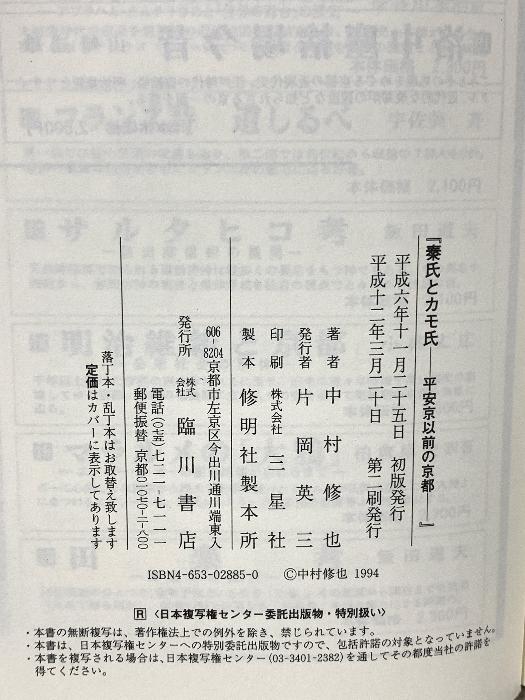 『秦氏とカモ氏――平安京以前の京都――』
平成六年十一月二十五日　初版発行
平成十二年三月二十日　第二刷発行
著者　中村修也
発行者　片岡英三
印刷　株式会社　三星社
製本　修明社製本所
606-8204 京都市左京区今出川通川端東入
発行所　株式会社　臨川書店
電話(〇七五)七二一-七一一一
郵便振替　京都〇一〇七〇-二-八〇〇
落丁本・乱丁本はお取替え致します
定価はカバーに表示してあります
ISBN4-653-02885-0　©中村修也 1994
R〈日本複写権センター委託出版物・特別扱い〉
・本書の無断複写は、著作権法上での例外を除き、禁じられています。
・本書は、日本複写権センターへの特別委託出版物ですので、包括許諾の対象となっていません。
・本書を複写される場合は、日本複写権センター(03-3401-2382)を通してその都度当社の許諾を
得てください。